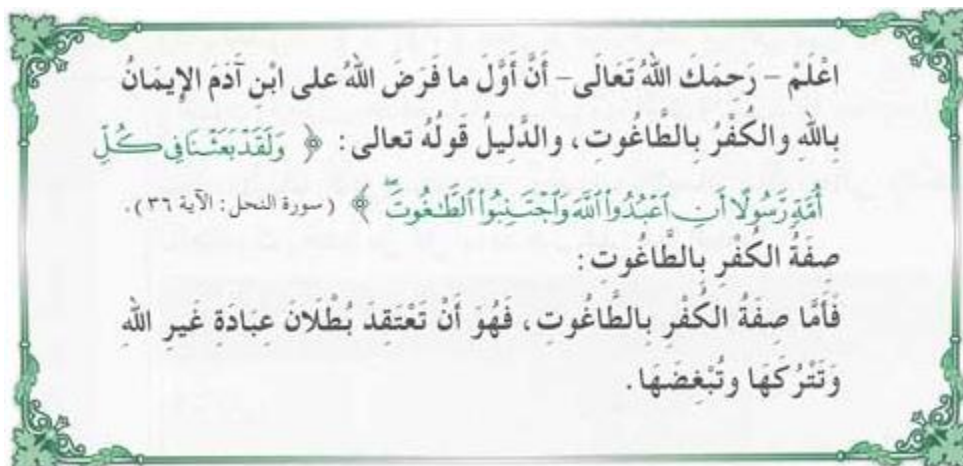 اعْلَمْ – رَحِمَكَ اللهُ تَعَالَى – أَنَّ أَوَّلَ ما فَرَضَ اللهُ على ابْنِ آدَمَ الإِيمَانُ
بِاللهِ والكُفْرُ بِالطَّاغُوتِ، والدَّلِيلُ قَولُهُ تعالى: ﴿ وَلَقَدْ بَعَثْنَا فِي كُلِّ
أُمَّةٍ رَّسُولًا أَنِ اعْبُدُوا اللَّهَ وَاجْتَنِبُوا الطَّاغُوتَ ﴾ (سورة النحل: الآية ٣٦).
صِفَةُ الكُفْرِ بِالطَّاغُوتِ:
فَأَمَّا صِفَةُ الكُفْرِ بِالطَّاغُوتِ، فَهُوَ أَنْ تَعْتَقِدَ بُطْلَانَ عِبَادَةِ غَيرِ اللهِ
وَتَتْرُكَهَا وتُبْغِضَهَا.